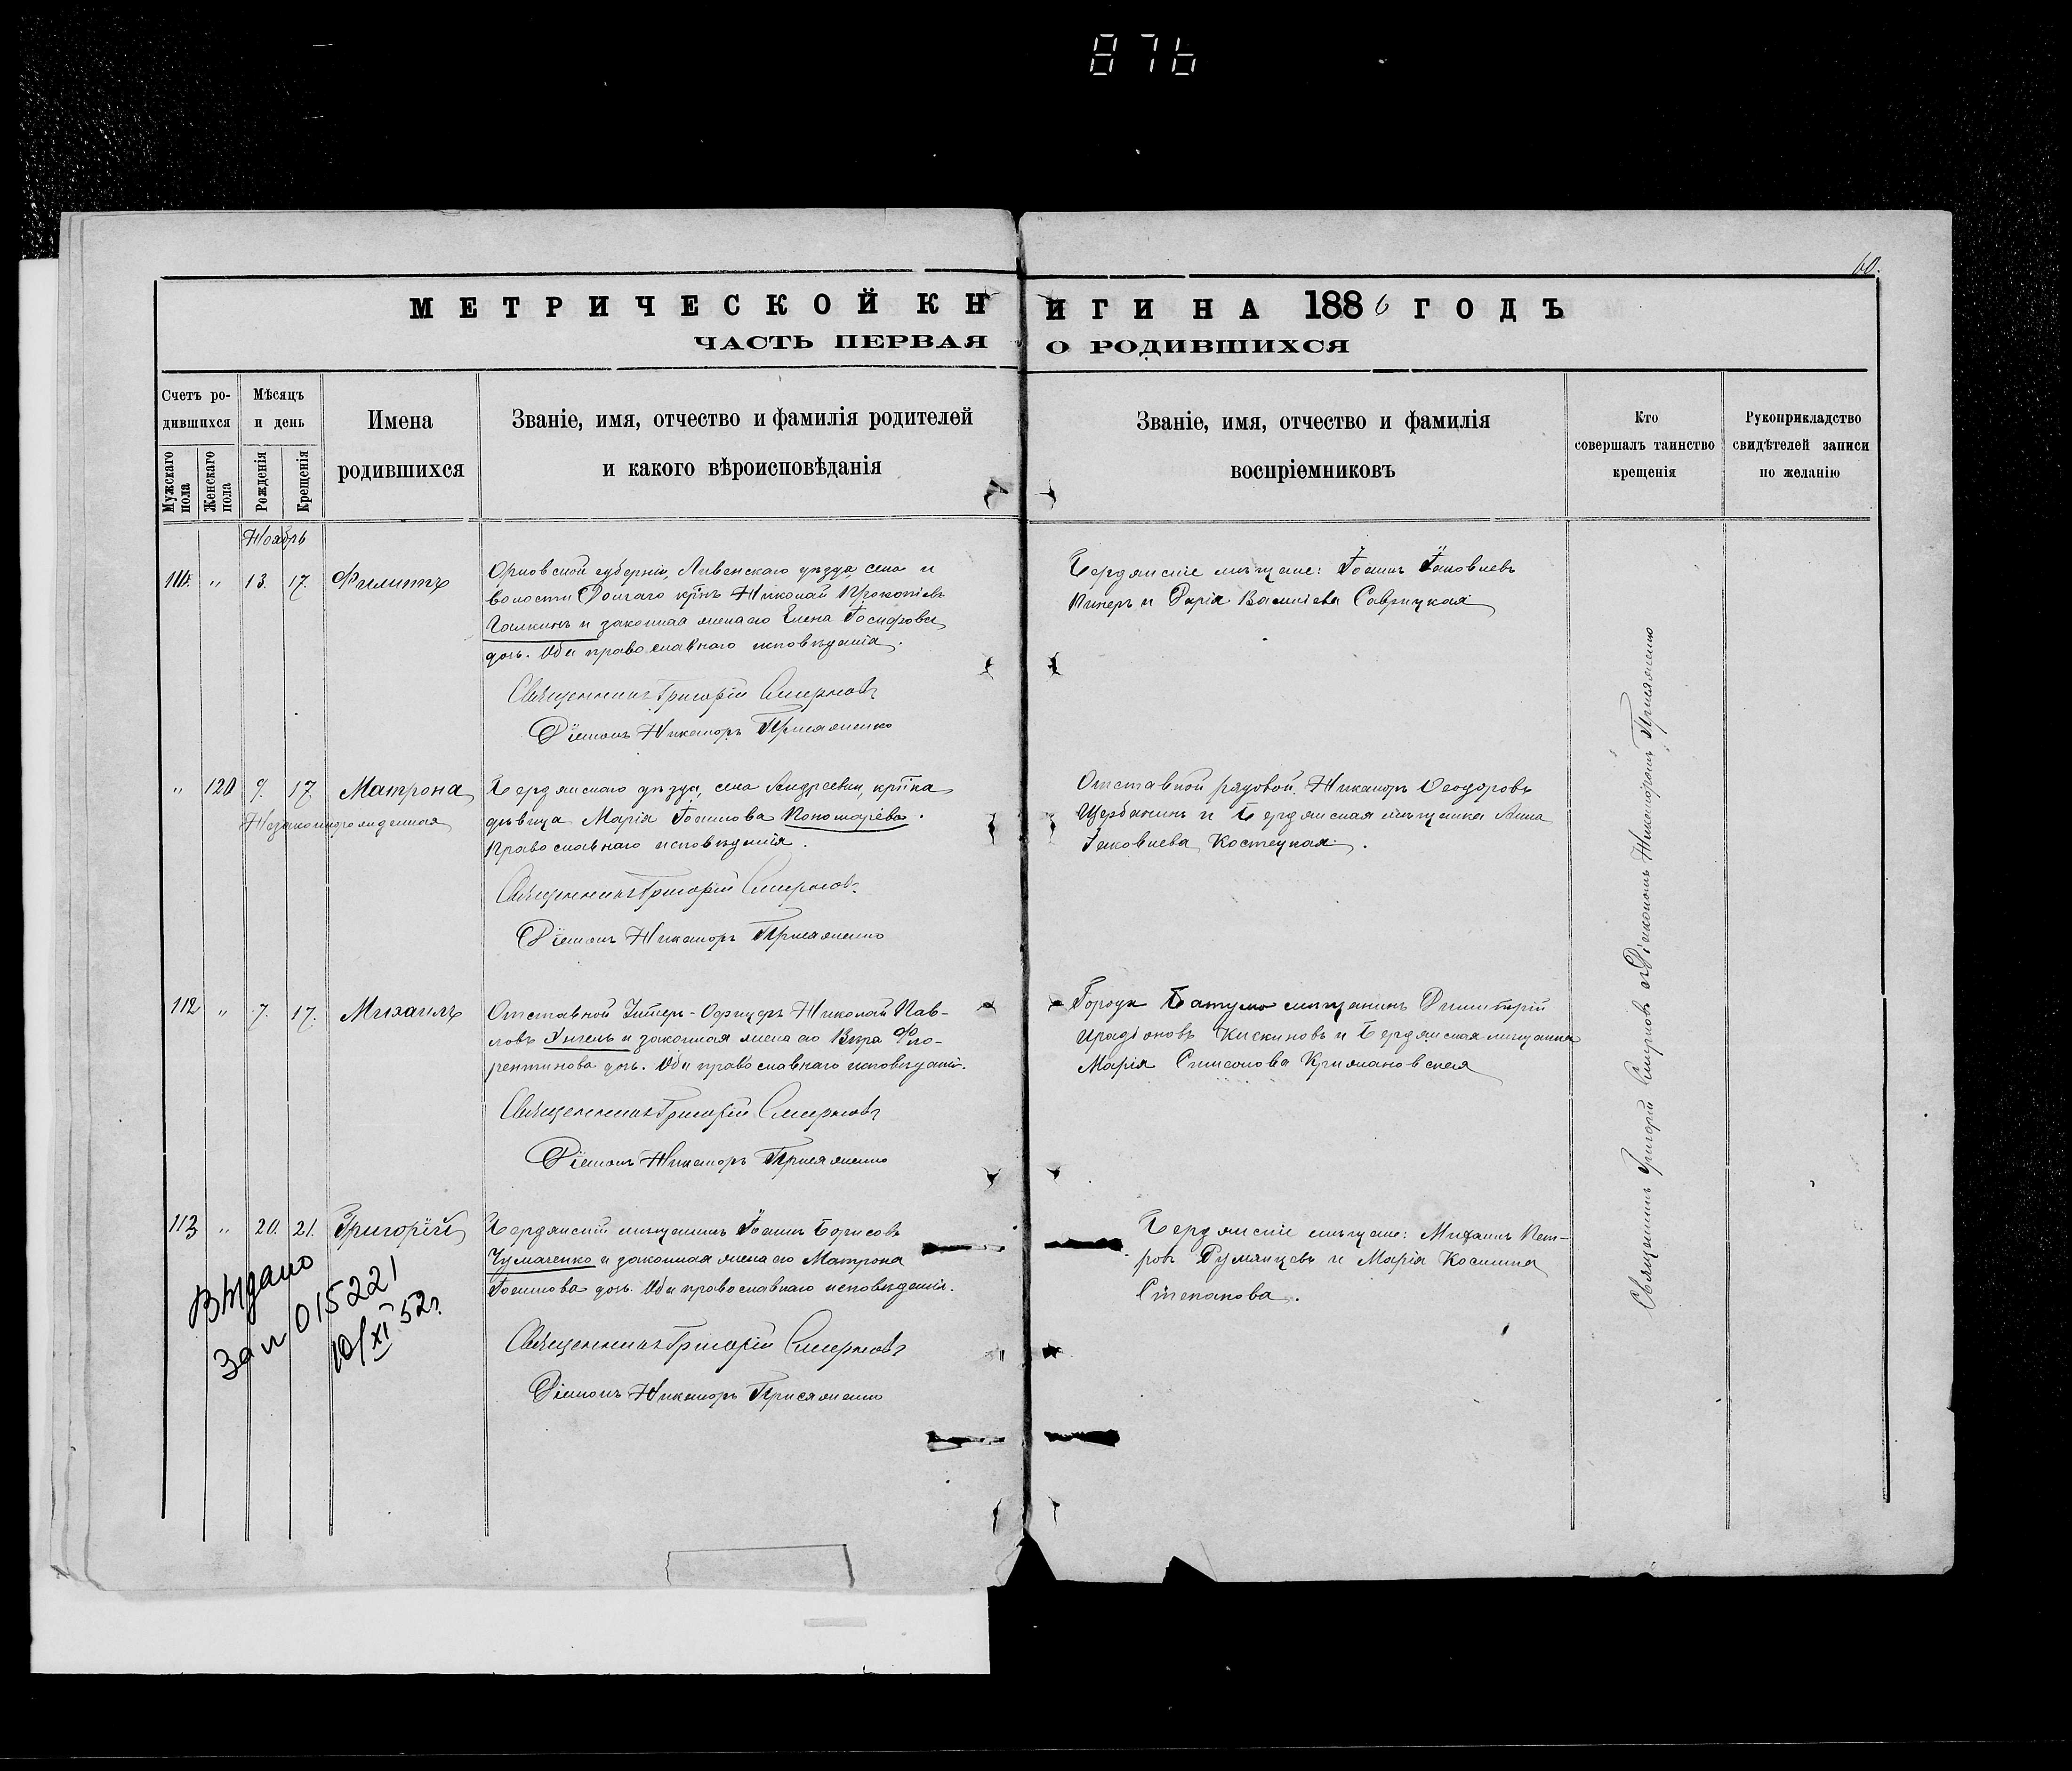 876
60.
МЕТРИЧЕСКОЙ КНИГИ НА 1886 ГОДЪ
ЧАСТЬ ПЕРВАЯ О РОДИВШИХСЯ
Счетъ ро-
дившихся
Мужскаго пола
Женскаго пола
Мѣсяцъ
и день
Рожденія
Крещенія
Имена
родившихся
Званіе, имя, отчество и фамилія родителей
и какого вѣроисповѣданія
Званіе, имя, отчество и фамилія
воспріемниковъ
Кто
совершалъ таинство
крещенія
Рукоприкладство
свидѣтелей записи
по желанію
Ноябрь
111. „ 13. 17. Филиппъ
Орловской губерніи, Ливенскаго уѣзда, села и
волости Долгаго кр̃нъ Николай Прокопіевъ
Галкинъ и законная жена его Елена Іосифова
дочь. Оба православнаго исповѣданія.
Священникъ Григорій Смирновъ
Діаконъ Никаноръ Присяженко
Бердянскіе мѣщане: Іоаннъ Іаковлевъ
и Дарія Василіева Саврицкая
„ 120 9. 17. Матрона
Незаконнорожденная
Бердянскаго уѣзда, села Андреевки, кр̃нка
дѣвица Марія Іоаннова Пономарева.
Православнаго исповѣданія.
Священникъ Григорій Смирновъ
Діаконъ Никаноръ Присяженко
Отставной рядовой Никаноръ Ѳеодоровъ
Щербакинъ и Бердянская мѣщанка Анна
Іаковлева Костецкая.
112 „ 7. 17. Михаилъ
Отставной Унтеръ-Офицеръ Николай Пав-
ловъ Янгель и законная жена его Вѣра Фло-
рентинова дочь. Оба православнаго исповѣданія.
Священникъ Григорій Смирновъ
Діаконъ Никаноръ Присяженко
Города Батума мѣщанинъ Димитрій
Ираdіоновъ Кискиновъ и Бердянская мѣщанка
Марія Симеонова Крижановская
113 „ 20. 21. Григорій
Бердянскій мѣщанинъ Іоаннъ Борисовъ
Чумаченко и законная жена его Матрона
Іоаннова дочь. Оба православнаго исповѣданія.
Священникъ Григорій Смирновъ
Діаконъ Никаноръ Присяженко
Бердянскіе мѣщане: Михаилъ Пет-
ровъ Румянцевъ и Марія Космина
Степанова.
Выдано
За № 015221
10/XI 52г.
Священникъ Григорій Смирновъ съ Діакономъ Никаноромъ Присяженко